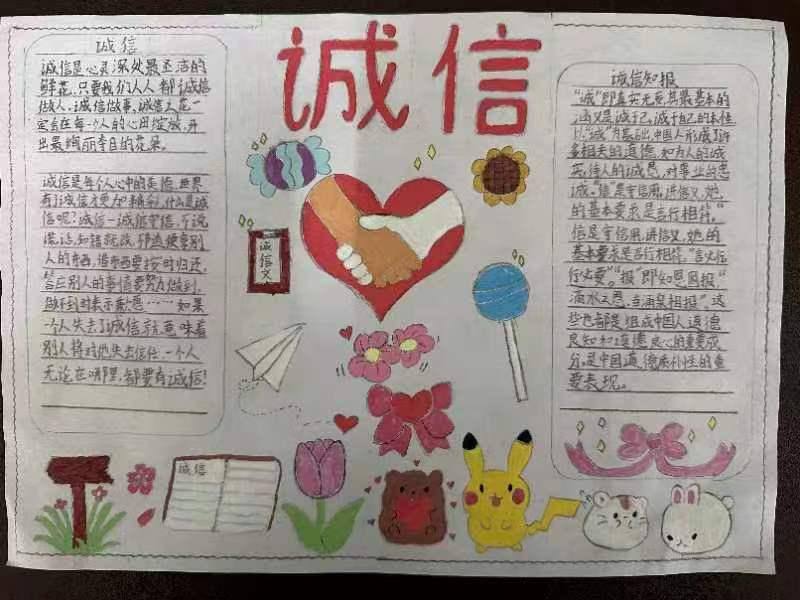 诚信
诚信
诚信是心灵深处最圣洁的
鲜花,只要我们人人都诚信
做人、诚信做事,诚信之花一
定会在每个人的心田绽放,开
出最绚丽夺目的花朵。
诚信是每个人心中的美德,世界
有了诚信才更加精彩,什么是诚
信呢?诚信—诚信守信,不说
谎话,知错就改,
人的东西,借东西要按时归还,
答应别人的事情要努力做到,
做不到时表示歉意……如果
一个人失去了诚信,就意味着
别人将对他失去信任,一个人
无论在哪里,都要有诚信!
诚信文
诚信
诚信知报
“诚”即真实无妄,其最基本的
涵义是诚于己,诚于自己的本性
以“诚”为基础,中国人形成了许
多相关的道德,如为人的诚
实,待人的诚恳,对事业的忠
诚。“信”是守信用,讲信义,她
的基本要求是言行相符。“
信是守信用,讲信义,她的
基本要求是言行相符,“言必信
行必果”。“报”即知恩图报“
滴水之恩,当涌泉相报”,这
些也都是组成中国人道德
良知和道德良心的重要成
分,是中国道德质朴性的重
要表现。